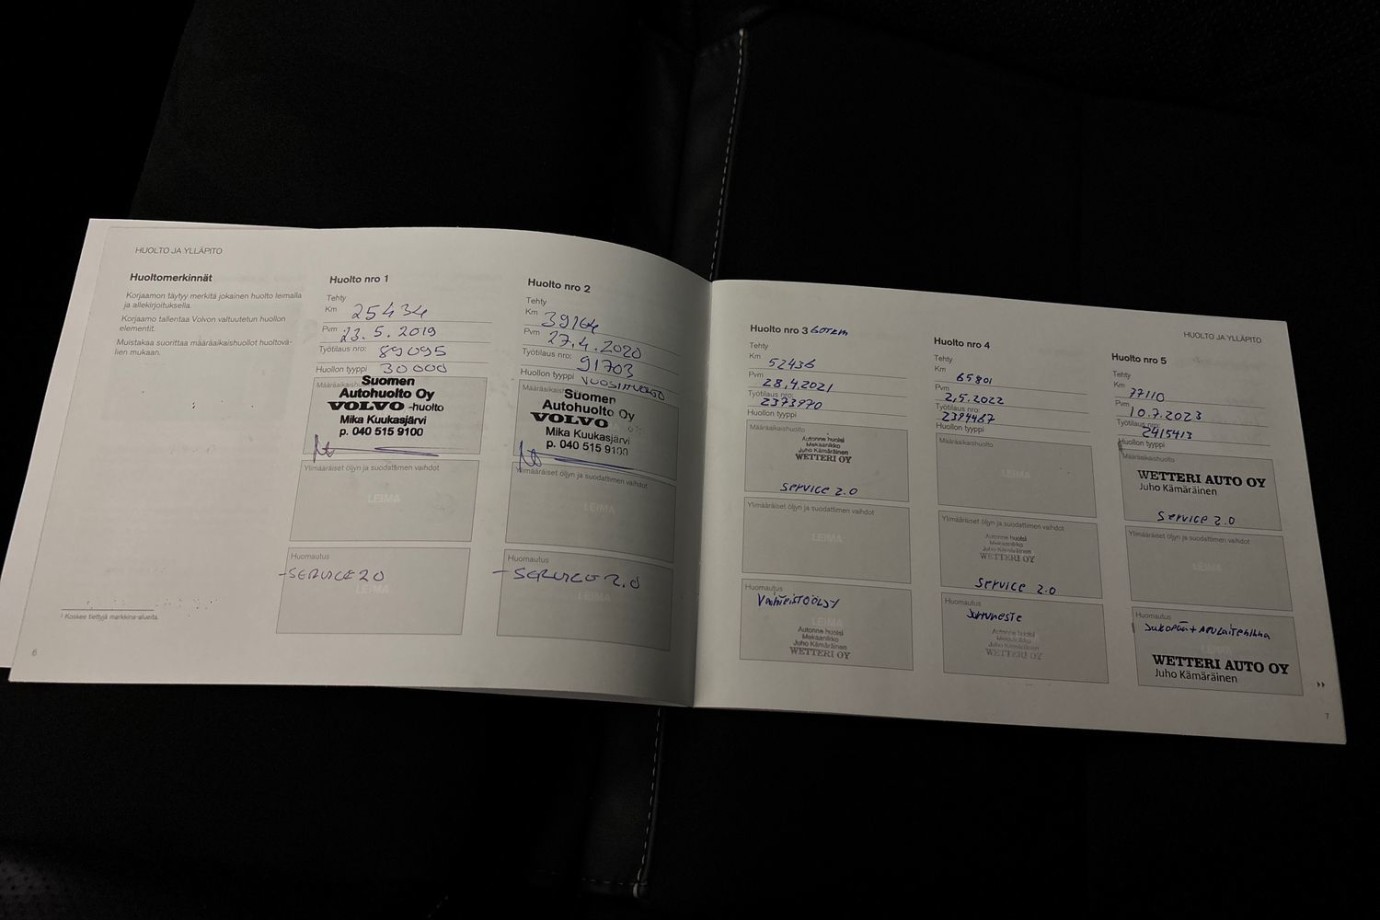 HUOLTO JA YLLÄPITO
Huoltomerkinnät
Korjaamon täytyy merkitä jokainen huolto leimalla
ja allekirjoituksella.
Korjaamo tallentaa Volvon valtuutetun huollon
elementit.
Muistakaa suorittaa määräaikaishuollot huoltovä-
lien mukaan.
6
Huolto nro 1
Tehty
Km 25434
Pvm 23.5.2019
Työtilaus nro: 89095
Huollon tyyppi 30000
Suomen
Autohuolto Oy
VOLVO -huolto
Mika Kuukasjärvi
p. 040 515 9100
Ylimääräiset öljyn ja suodattimen vaihdot
LEIMA
Huomautus
-SERVICE 2.0
LEIMA
Huolto nro 2
Tehty
Km 39164
Pvm 27.4.2020
Työtilaus nro: 91703
Huollon tyyppi VUOSIHUOLTO
Suomen
Autohuolto Oy
VOLVO
Mika Kuukasjärvi
p. 040 515 9100
Ylimääräiset öljyn ja suodattimen vaihdot
LEIMA
Huomautus
-SERVICE 2.0
LEIMA
HUOLTO JA YLLÄPITO
Huolto nro 3
Tehty
Km 52436
Pvm 28.4.2021
Työtilaus nro: 2373970
Huollon tyyppi
Määräaikaishuolto
Autonne huolsi
Mekaanikko
WETTERI OY
Service 2.0
Ylimääräiset öljyn ja suodattimen vaihdot
LEIMA
Huomautus
LEIMA
Autonne huolsi
Mekaanikko
Juho Kämäräinen
WETTERI OY
Huolto nro 4
Tehty
Km 65801
Pvm 2.5.2022
Työtilaus nro: 2394467
Huollon tyyppi
Määräaikaishuolto
LEIMA
Ylimääräiset öljyn ja suodattimen vaihdot
Autonne huolsi
Mekaanikko
Juho Kämäräinen
WETTERI OY
Service 2.0
Huomautus
Jarruneste
Autonne huolsi
Mekaanikko
Juho Kämäräinen
WETTERI OY
Huolto nro 5
Tehty
Km 77110
Pvm 10.7.2023
Työtilaus nro: 2415413
Huollon tyyppi
Määräaikaishuolto
WETTERI AUTO OY
Juho Kämäräinen
Service 2.0
Ylimääräiset öljyn ja suodattimen vaihdot
LEIMA
Huomautus
WETTERI AUTO OY
Juho Kämäräinen
7